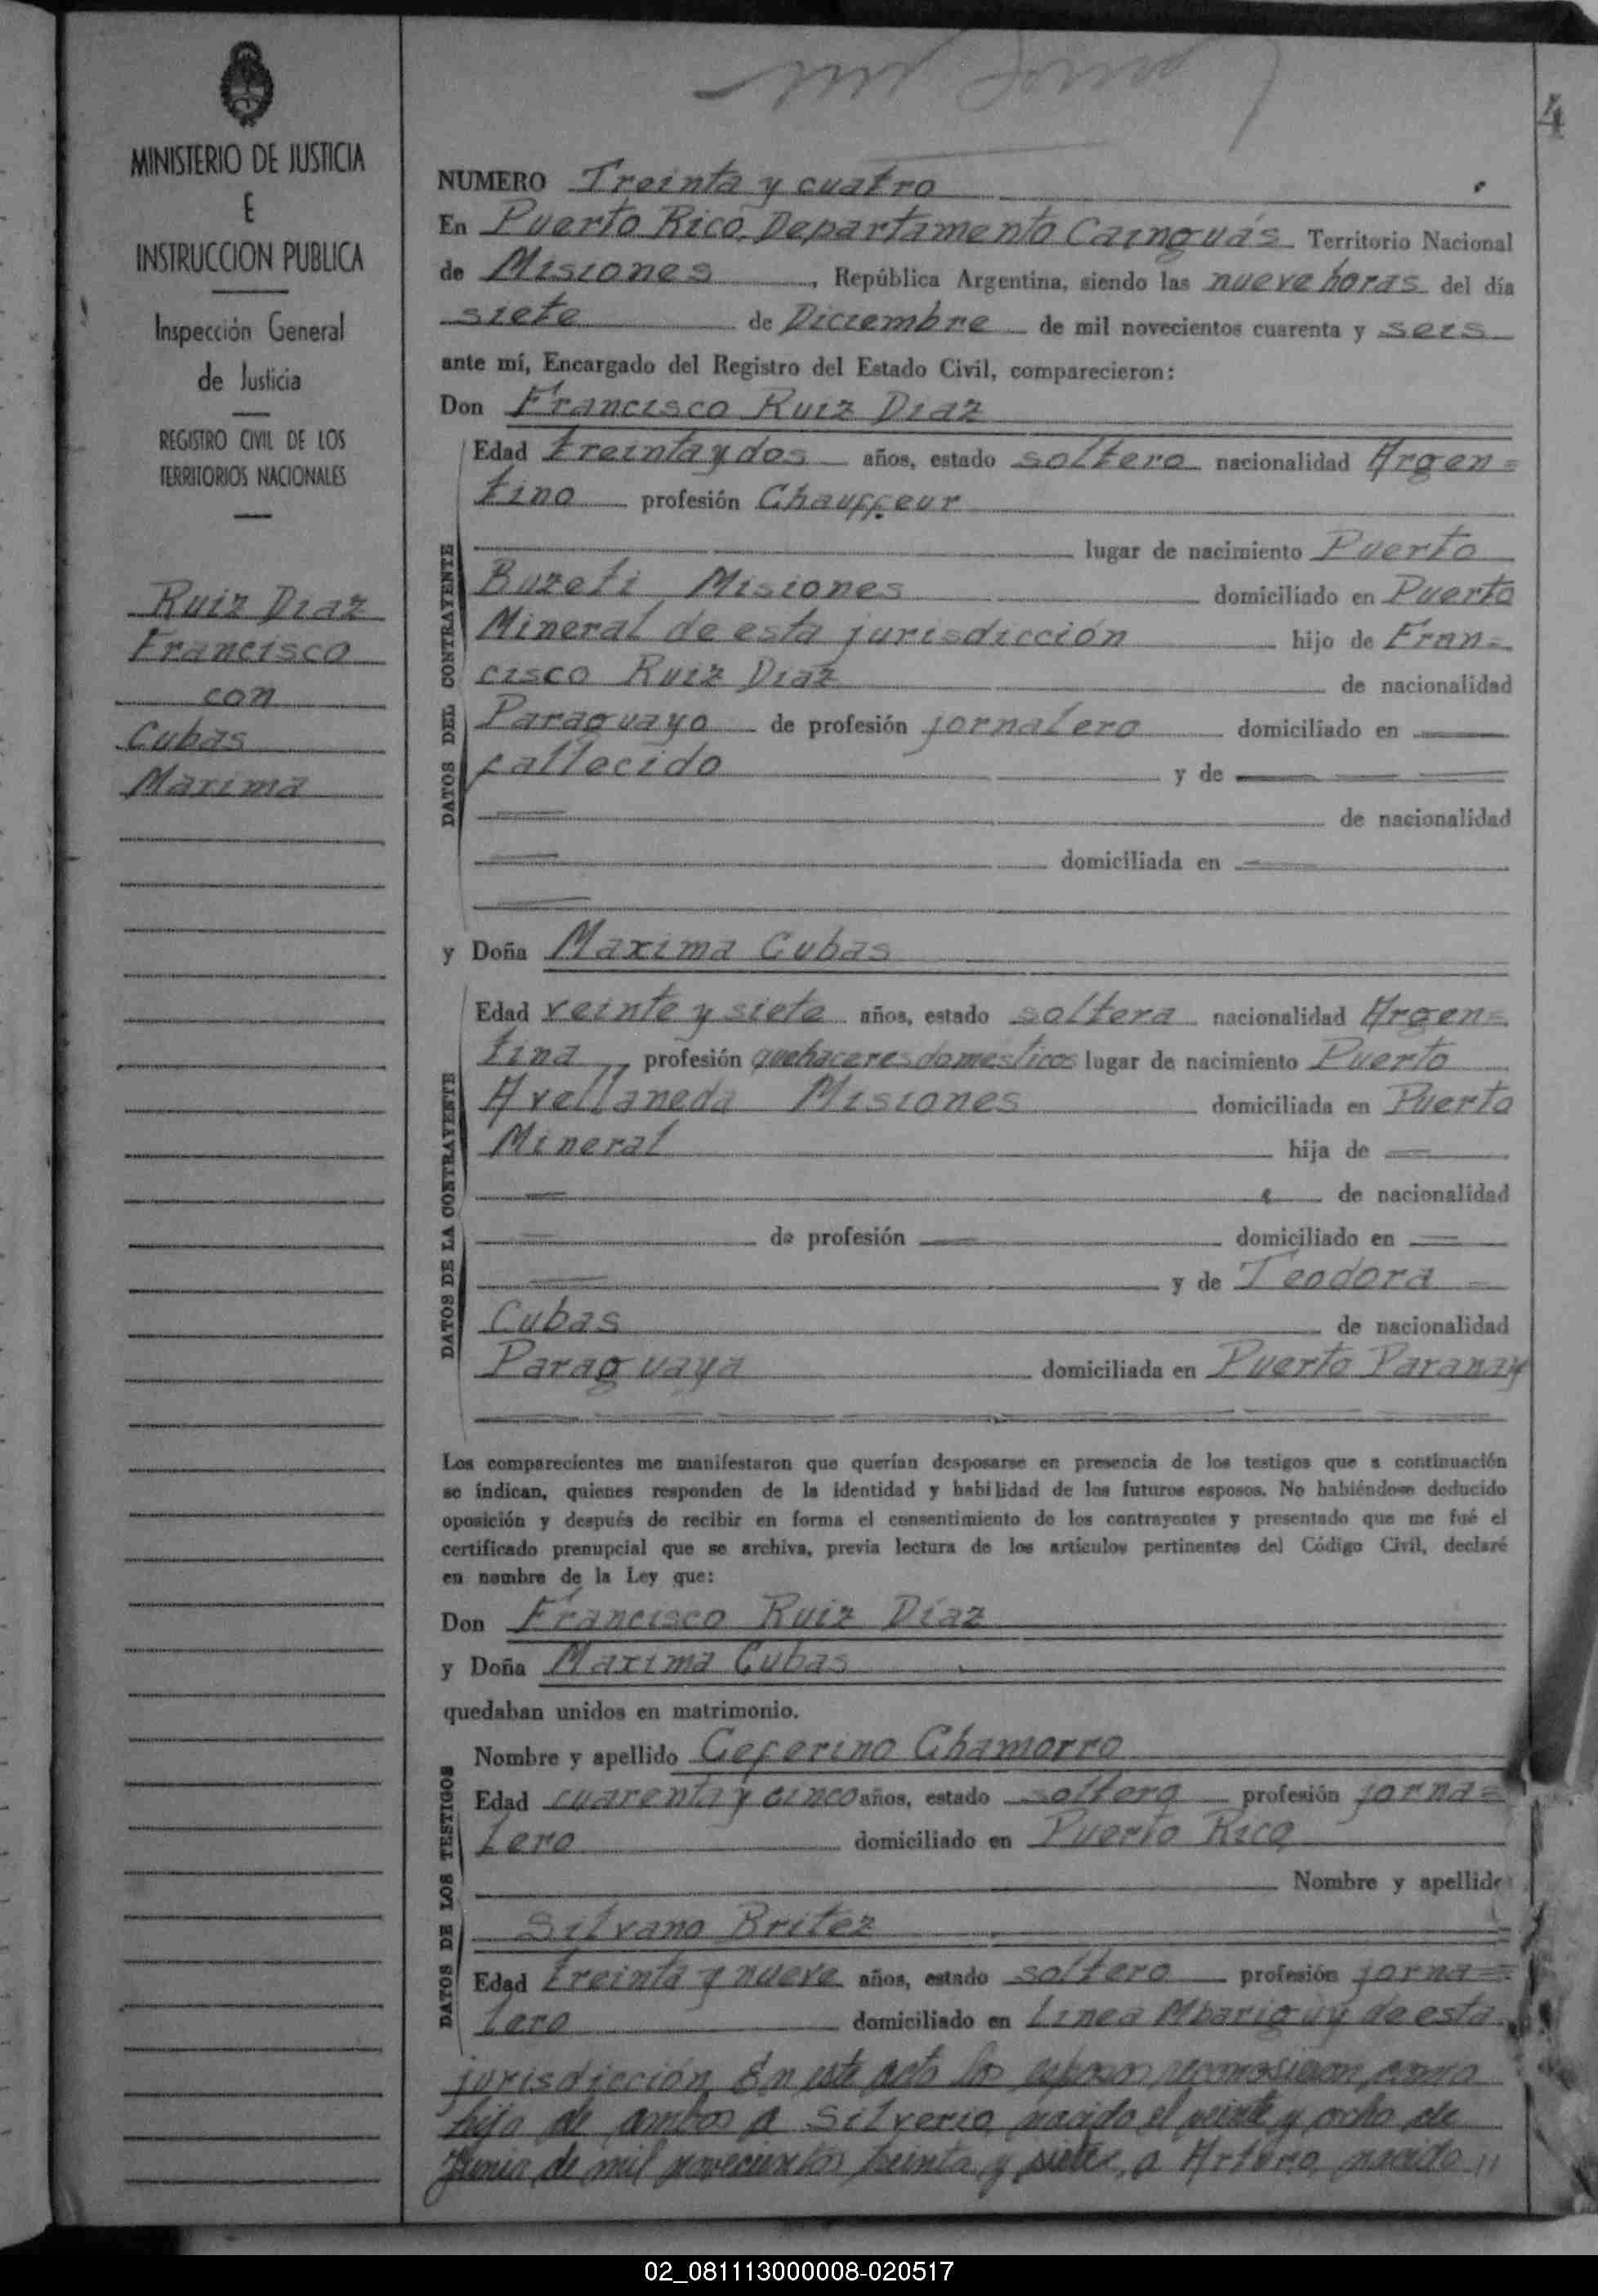 4
MINISTERIO DE JUSTICIA
E
INSTRUCCION PUBLICA
Inspección General
de Justicia
REGISTRO CIVIL DE LOS
TERRITORIOS NACIONALES
Ruiz Diaz
Francisco
con
Cubas
Maxima
NUMERO Treinta y cuatro
En Puerto Rico, Departamento Cainguás Territorio Nacional
de Misiones, República Argentina, siendo las nueve horas del día
siete de Diciembre de mil novecientos cuarenta y seis
ante mí, Encargado del Registro del Estado Civil, comparecieron:
Don Francisco Ruiz Diaz
DATOS DEL CONTRAYENTE
Edad treinta y dos años, estado soltero nacionalidad Argen=
tino profesión Chauffeur
lugar de nacimiento Puerto
Misiones domiciliado en Puerto
Mineral de esta jurisdicción hijo de Fran=
cisco Ruiz Diaz de nacionalidad
Paraguayo de profesión jornalero domiciliado en
fallecido y de
de nacionalidad
domiciliada en
y Doña Maxima Cubas
DATOS DE LA CONTRAYENTE
Edad veinte y siete años, estado soltera nacionalidad Argen=
tina profesión quehaceres domesticos lugar de nacimiento Puerto
Avellaneda Misiones domiciliada en Puerto
Mineral hija de
de nacionalidad
de profesión domiciliado en
y de Teodora
Cubas de nacionalidad
Paraguaya domiciliada en Puerto Paranay
Los comparecientes me manifestaron que querían desposarse en presencia de los testigos que a continuación
se indican, quienes responden de la identidad y habilidad de los futuros esposos. No habiéndose deducido
oposición y después de recibir en forma el consentimiento de los contrayentes y presentado que me fué el
certificado prenupcial que se archiva, previa lectura de los artículos pertinentes del Código Civil, declaré
en nombre de la Ley que:
Don Francisco Ruiz Díaz
y Doña Maxima Cubas
quedaban unidos en matrimonio.
DATOS DE LOS TESTIGOS
Nombre y apellido Ceferino Chamorro
Edad cuarenta y cinco años, estado soltero profesión jorna=
lero domiciliado en Puerto Rico
Nombre y apellido
Silvano Britez
Edad treinta y nueve años, estado soltero profesión jorna=
lero domiciliado en Linea Mbariguy de esta
jurisdicción. En este acto los esposos reconocieron como
hijo de ambos a Silverio, nacido el veinte y ocho de
Junio de mil novecientos treinta y siete, a Arturo, nacido //
02_081113000008-020517